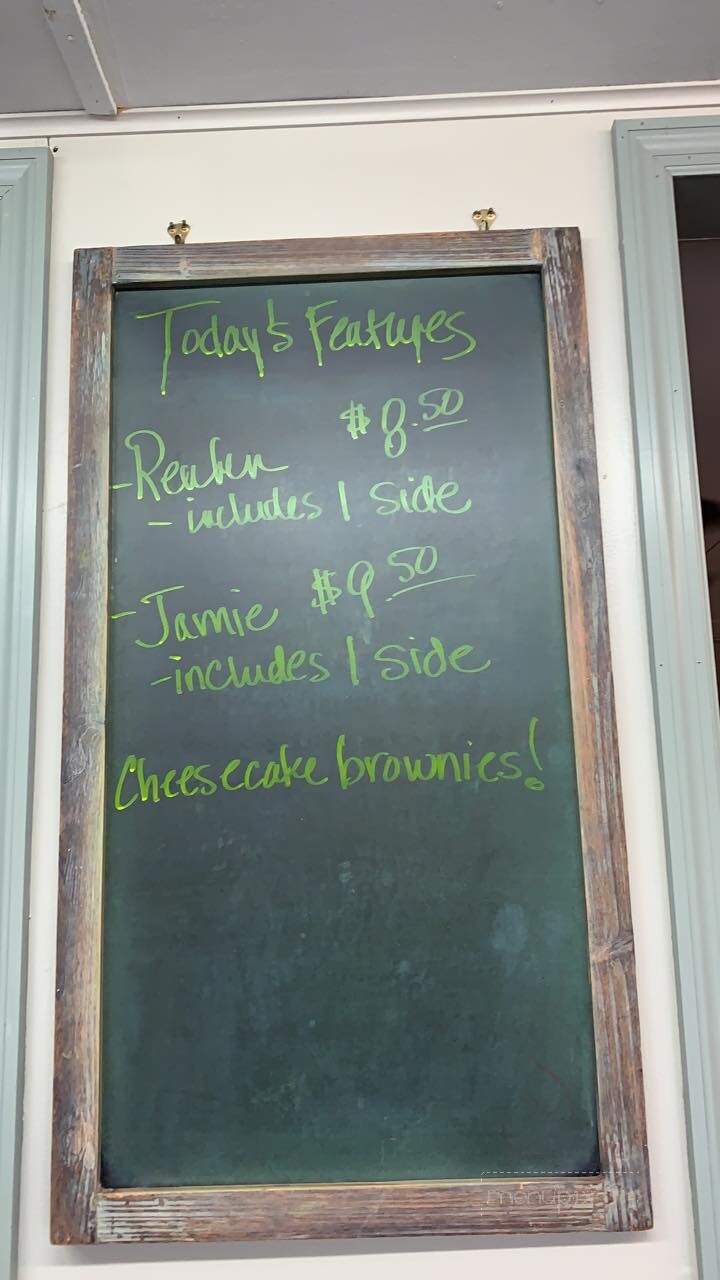 Today's Features
-Reuben $8.50
-includes 1 side
-Jamie $9.50
-includes 1 side
Cheesecake brownies!